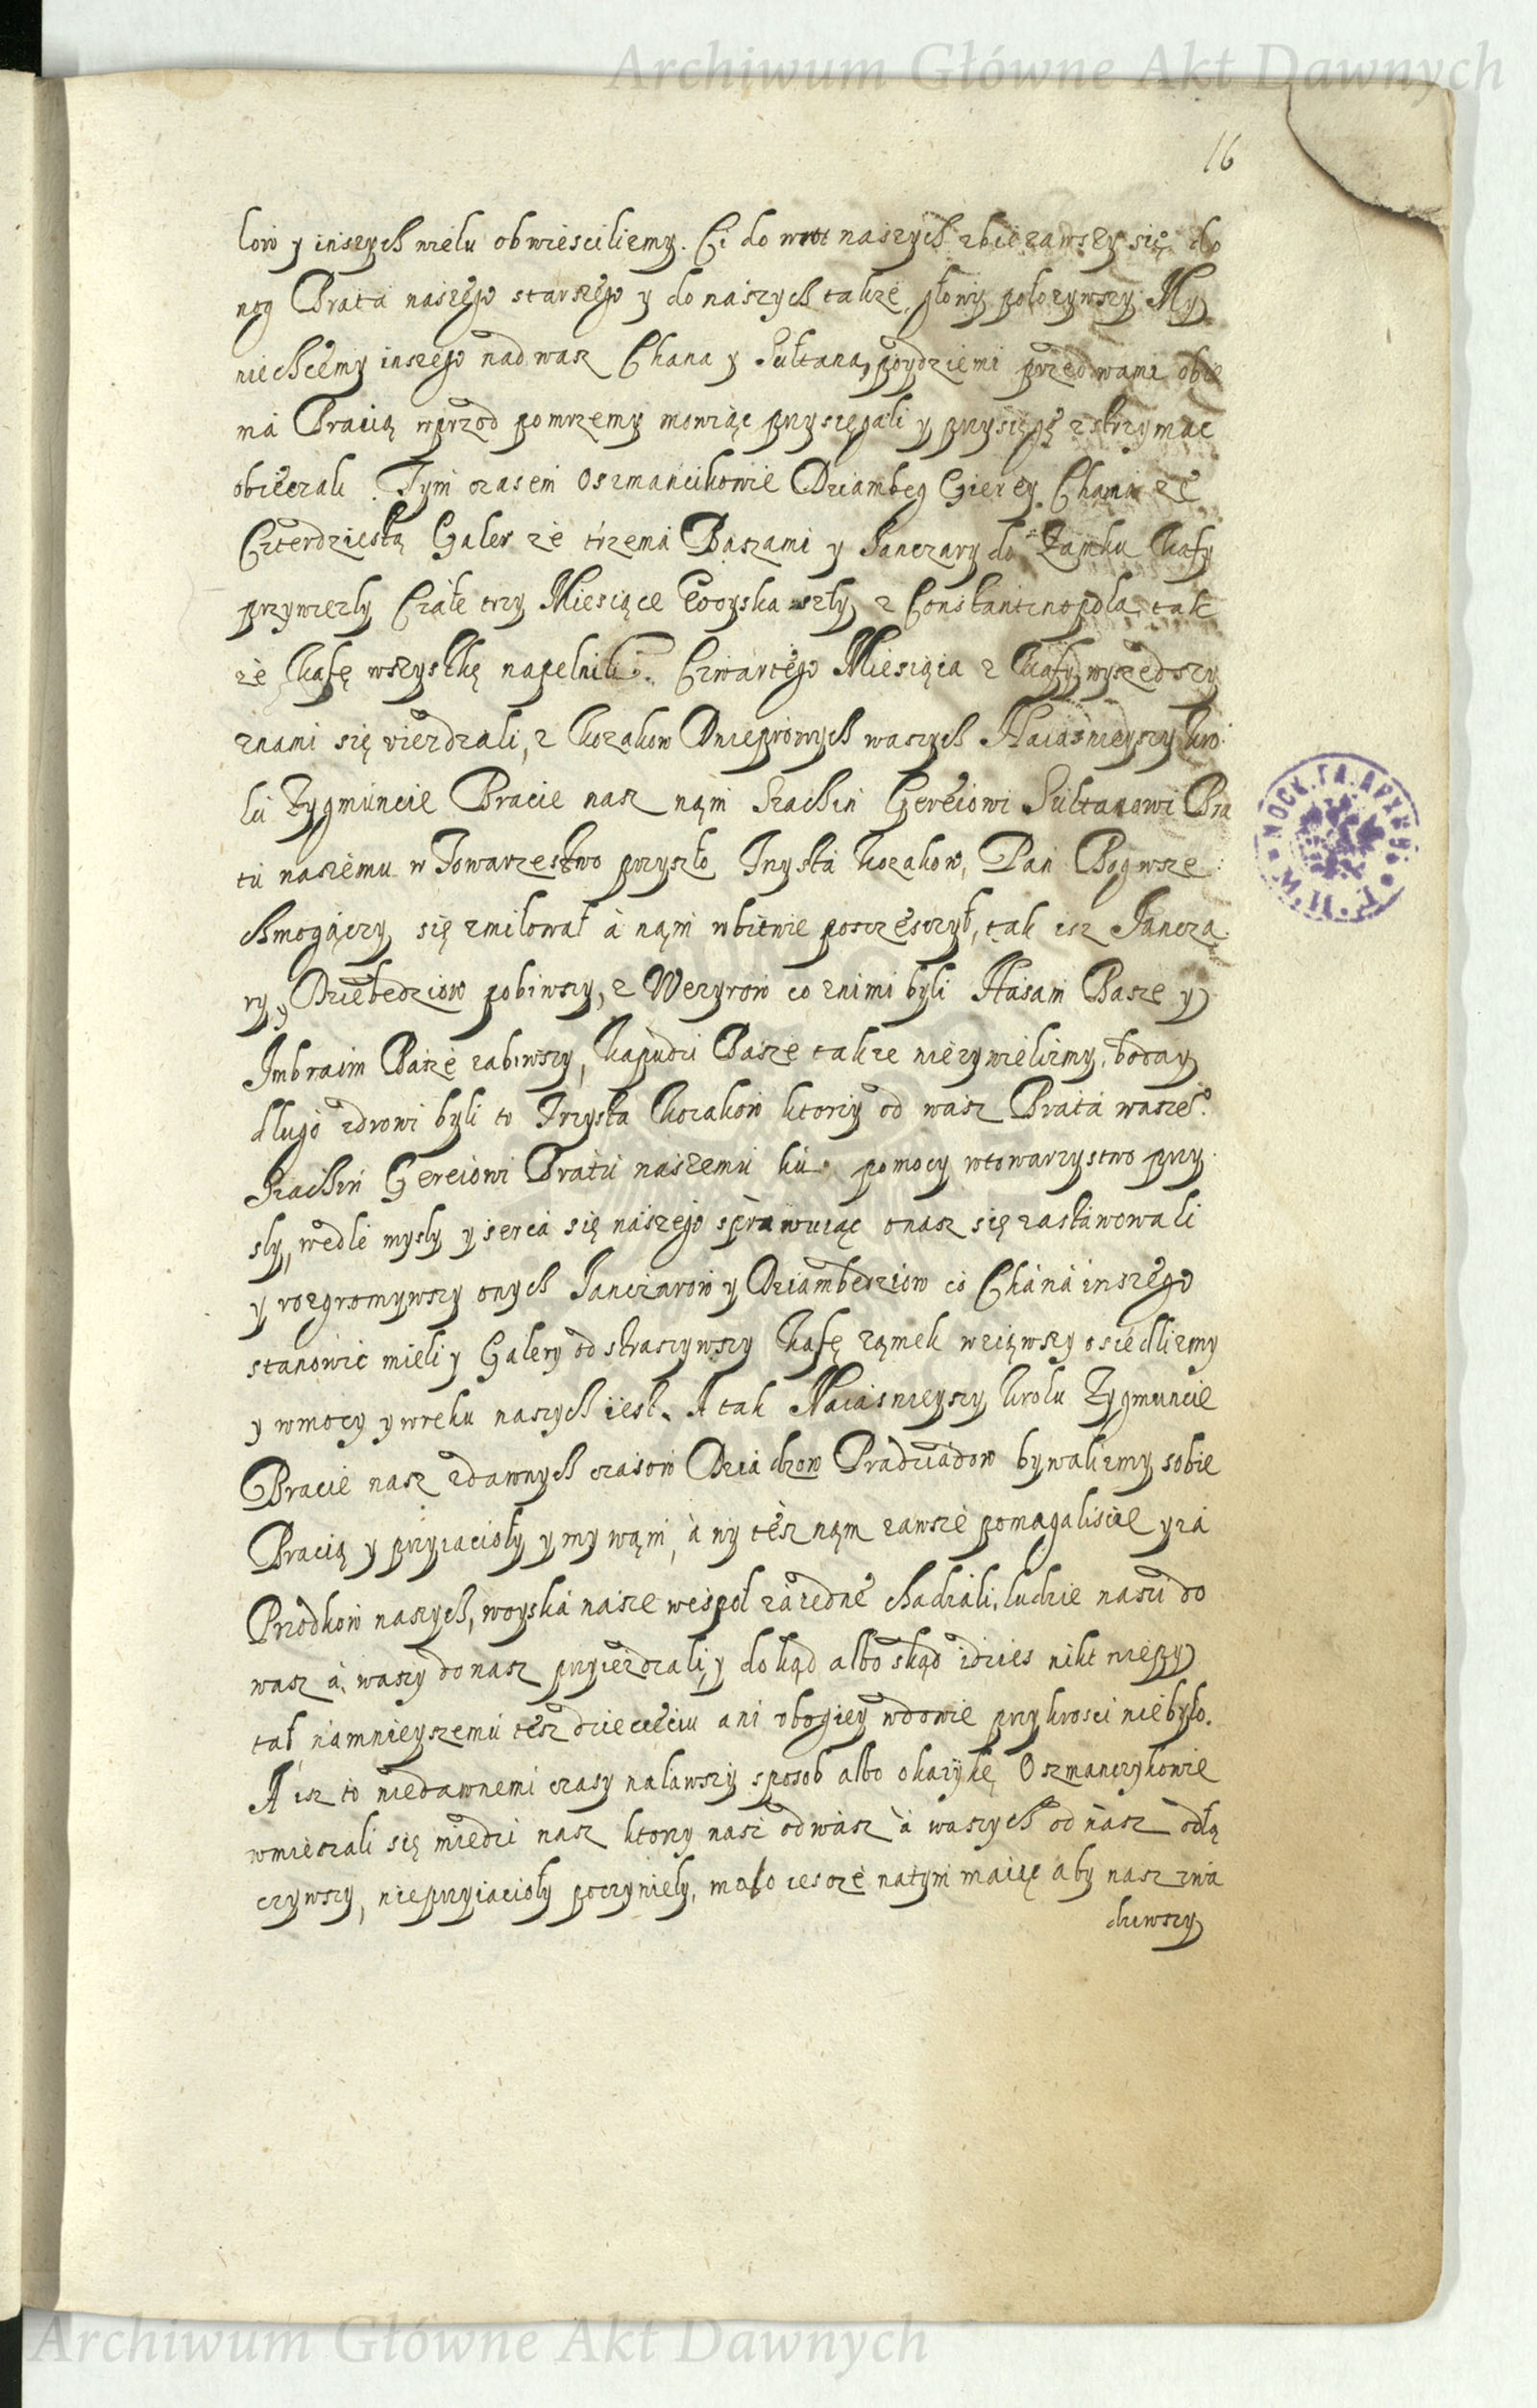 Archiwum Główne Akt Dawnych
16
low y inszych wielu obwiesciliemy. Ci do wrot naszych zbierawszy się do
nog Brata naszego starszego y do naszych takze głowy położywszy My
niechcemy inszego nad was Chana y Sułtana, poydziemi przed wami obie
ma Bracią wprzod pomrzemy mowiąc przysięgali y przysięgę zstrzymac
obieczali. Tym czasem Oszmancikowie Dziambeg Gierey Chana ze
Czterdziestą Galer ze trzema Baszami y Janczary do Zamku Kafy
przywiezly Czałe trzy Miesiące woyska szły z Constantinopola tak
ze Kafę wszystkę napelnili. Czwartego Miesiąca z Kafy wyszedszy
znami się zieżdzali, z Kozakow Dnieprowych waszych Naiasnieyszy Kro
lu Zygmuncie Bracie nasz nąm Szachin Gereiowi Sultanowi Bra
tu naszemu w Towarzestwo przyszło Trzysta Kozakow, Pan Bog wsze
chmogączy się zmiłował à nąm wbitwie poszczesczył, tak isz Jancza
ry, Dziebedziow pobiwszy, z Wezyrow co znimi byli Hasam Basze y
Imbraim Basze zabiwszy, Kapudzi Basze takze nieżywielizmy, boday
dlugo zdrowi byli to Trzysta Kozakow ktorzy od wasz Brata wasze°
Szachin Gereiowi Bratu naszemu ku pomocy wtowarzystwo przy
sly, wedle mysly y serca się naszego sprawuiąc onasz się zastawowali
y rozgromywszy onych Janczarow y Dziambedziow co Chána inszego
stanowic mieli y Galery odstraszywszy Kafę zamek wziąwszy osiedlizmy
y wmocy y wreku naszych iest. A tak Naiasnieyszy Krolu Zygmuncie
Bracie nasz zdawnych czasow Dziadzow Pradziadow bywalizmy sobie
Bracią y przyiacioły y my wąm, à wy tesz nąm zawsze pomagaliscie y za
Przodkow naszych, woyska nasze wespoł zaiedne chadzali, ludzie naszi do
wasz à waszy donasz przyieżdzali, y dokąd albo skąd idzies nikt niepy
tał, namnieyszemu tesz dziecięciu ani vbogiey wdowie przykrosci niebyło.
A isz to niedawnemi czasy nalawszy sposob albo okazykę Oszmanczykowie
wmieszali się miedzi nasz ktorzy naszi odwasz à waszych od nasz odłą
czywszy, nieprzyiacioły poczyniely, mało iescze natym maiąc aby nasz zwa
dziwszy
Archiwum Główne Akt Dawnych